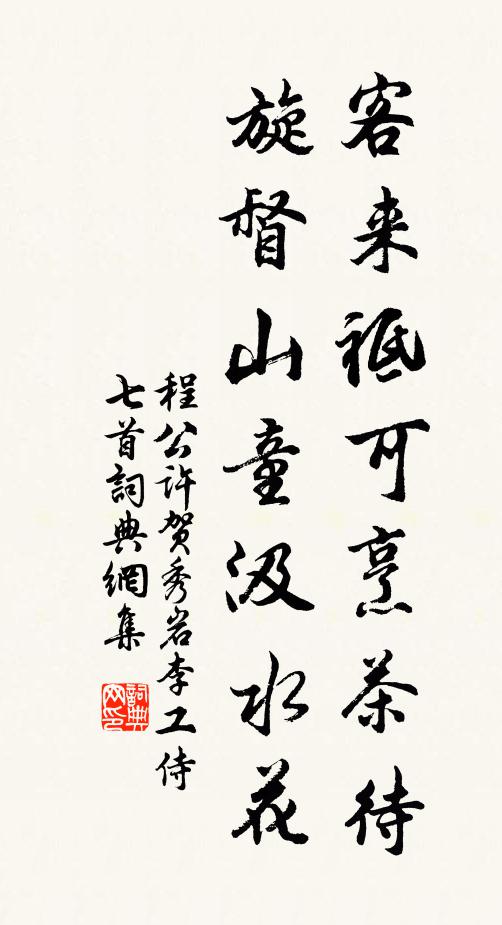 客来祗可烹茶待
旋督山童汲水花
程公许贺秀岩李工侍
七首詞典網集
詞典
网印